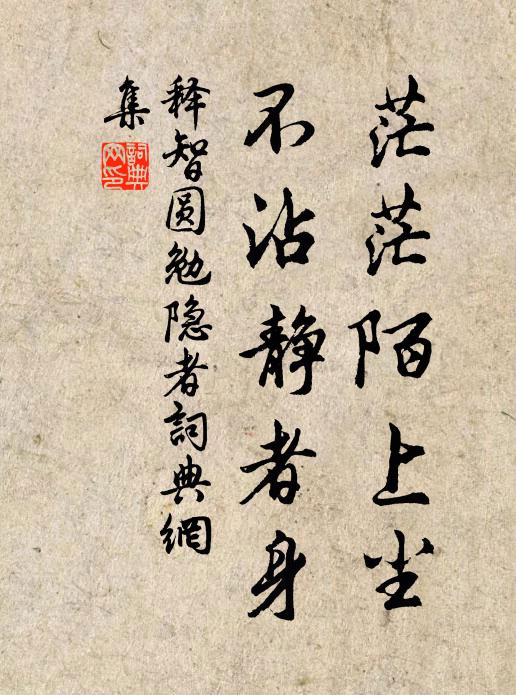 茫茫陌上尘
不沾静者身
释智圆勉隐者詞典網
集
詞典
网印